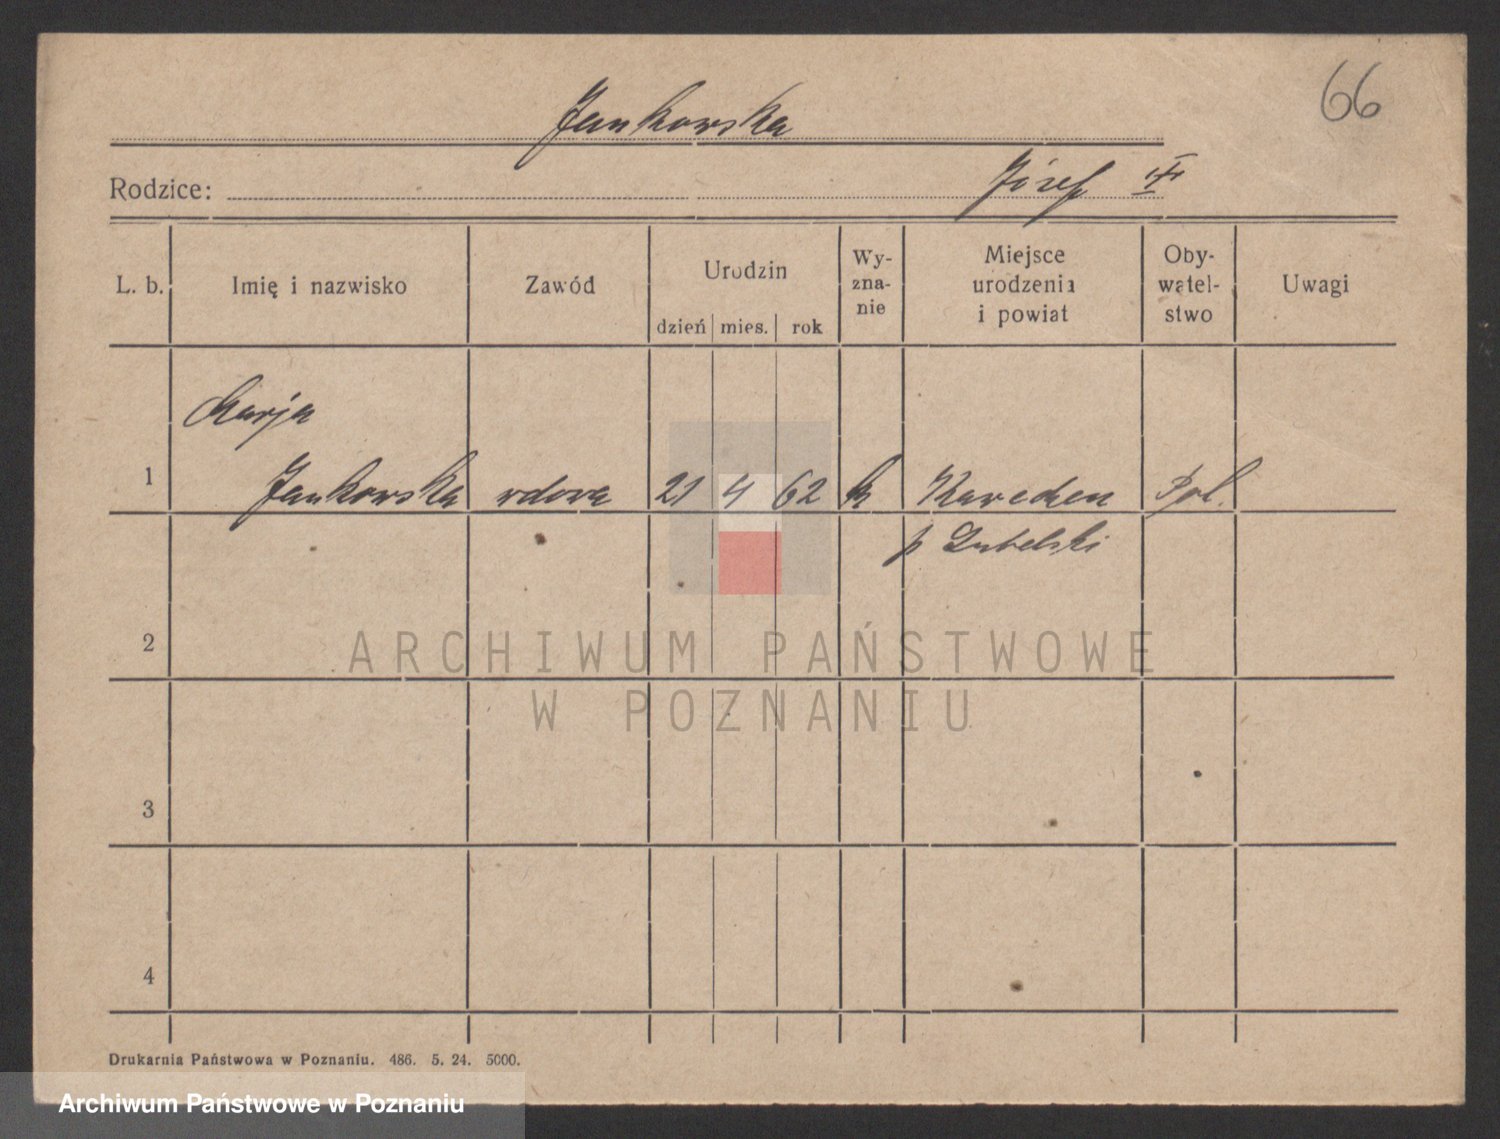 66
Jankowska
Rodzice: Józef
L. b. Imię i nazwisko Zawód Urodzin dzień mies. rok Wy- zna- nie Miejsce urodzenia i powiat Oby- watel- stwo Uwagi
Marja
1 Jankowska wdowa 21 4 62 k Pol.
p Lubelski
2
ARCHIWUM PAŃSTWOWE
W POZNANIU
3
4
Drukarnia Państwowa w Poznaniu. 486. 5. 24. 5000.
Archiwum Państwowe w Poznaniu